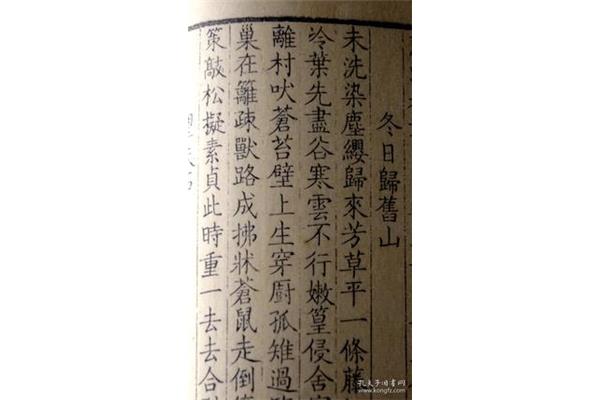 冬日歸舊山
未洗染塵纓歸來芳草平一條藤
冷葉先盡谷寒雲不行嫩篁侵舍
離村吠蒼苔壁上生穿廚孤雉過
巢在籬疎獸路成拂牀蒼鼠走倒
策敲松擬素貞此時重一去去合
孔夫子旧书网
www.kongfz.com